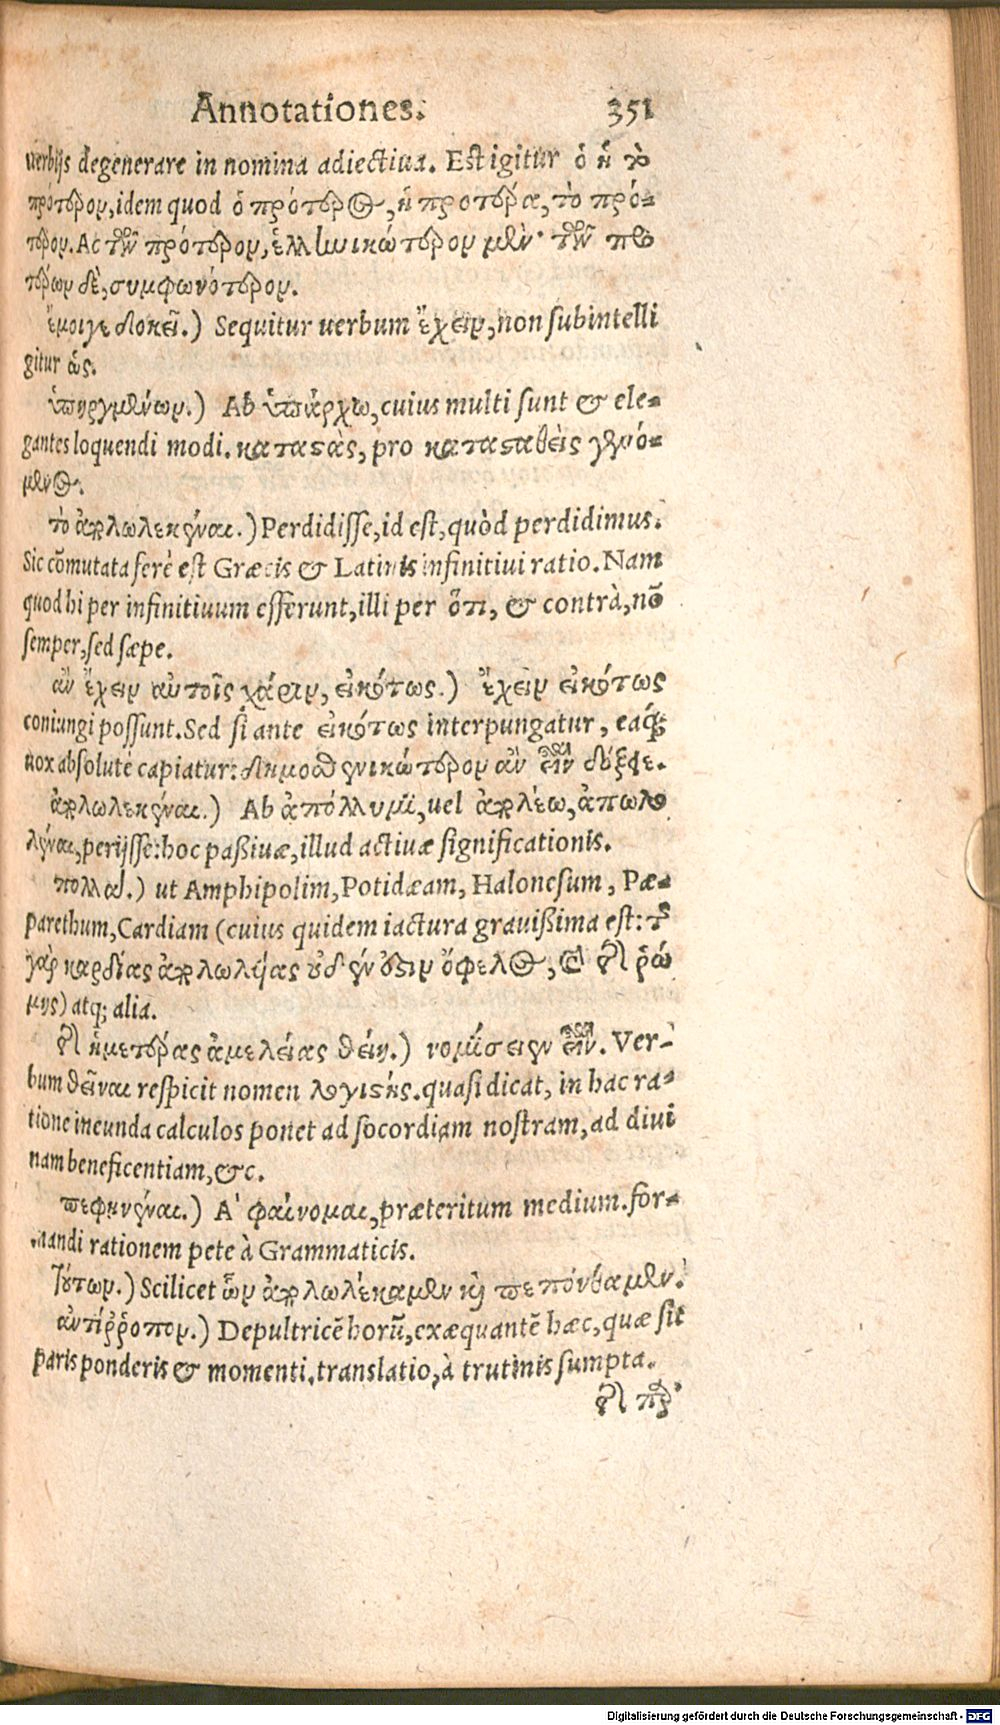 Annotationes. 351
verbijs degenerare in nomina adiectiua. Est igitur ὁ ἡ τὸ
πρότερον, idem quod ὁ πρότερος, ἡ προτέρα, τὸ πρό-
τερον. Ac τῶν πρότερον, ἑλληνικώτερον μὲν· τῶν προ
τέρων δὲ, συμφωνότερον.
ἔμοιγε δοκεῖ.) Sequitur uerbum ἔχειν, non subintelli
gitur ὡς.
ὑπηργμένων.) Ab ὑπάρχω, cuius multi sunt & ele-
gantes loquendi modi. καταστὰς, pro κατασταθεὶς γενό-
μενος.
τὸ ἀπολωλεκέναι.) Perdidisse, id est, quòd perdidimus.
Sic cōmutata ferè est Græcis & Latinis infinitiui ratio. Nam
quod hi per infinitiuum efferunt, illi per ὅτι, & contrà, nō
semper, sed sæpe.
ἂν ἔχειν αὐτοῖς χάριν, εἰκότως.) ἔχειν εἰκότως
coniungi possunt. Sed si ante εἰκότως interpungatur, eaq́;
uox absolutè capiatur: δημοσθενικώτερον ἂν εἶναι δόξειε.
ἀπολωλεκέναι.) Ab ἀπόλλυμι, uel ἀπολέω, ἀπολω
λέναι, perijsse: hoc paßiuæ, illud actiuæ significationis.
πολλά.) ut Amphipolim, Potidæam, Halonesum, Pæ-
parethum, Cardiam (cuius quidem iactura grauißima est: τῆς
γὰρ καρδίας ἀπολωλυίας οὐδέν ἐστιν ὄφελος, καὶ τῆς ῥώ
μης) atq; alia.
τῆς ἡμετέρας ἀμελείας θείη.) νομίσειεν εἶναι. Ver-
bum θεῖναι respicit nomen λογιστής. quasi dicat, in hac ra-
tione ineunda calculos ponet ad socordiam nostram, ad diui
nam beneficentiam, &c.
πεφηνέναι.) A' φαίνομαι, præteritum medium. for-
mandi rationem pete à Grammaticis.
τούτων.) Scilicet ὧν ἀπολωλέκαμεν καὶ πεπόνθαμεν.
ἀντίῤῥοπον.) Depultricē horū, exæquantē hæc, quæ sit
paris ponderis & momenti. translatio, à trutinis sumpta.
τῆς πρ
Digitalisierung gefördert durch die Deutsche Forschungsgemeinschaft - DFG